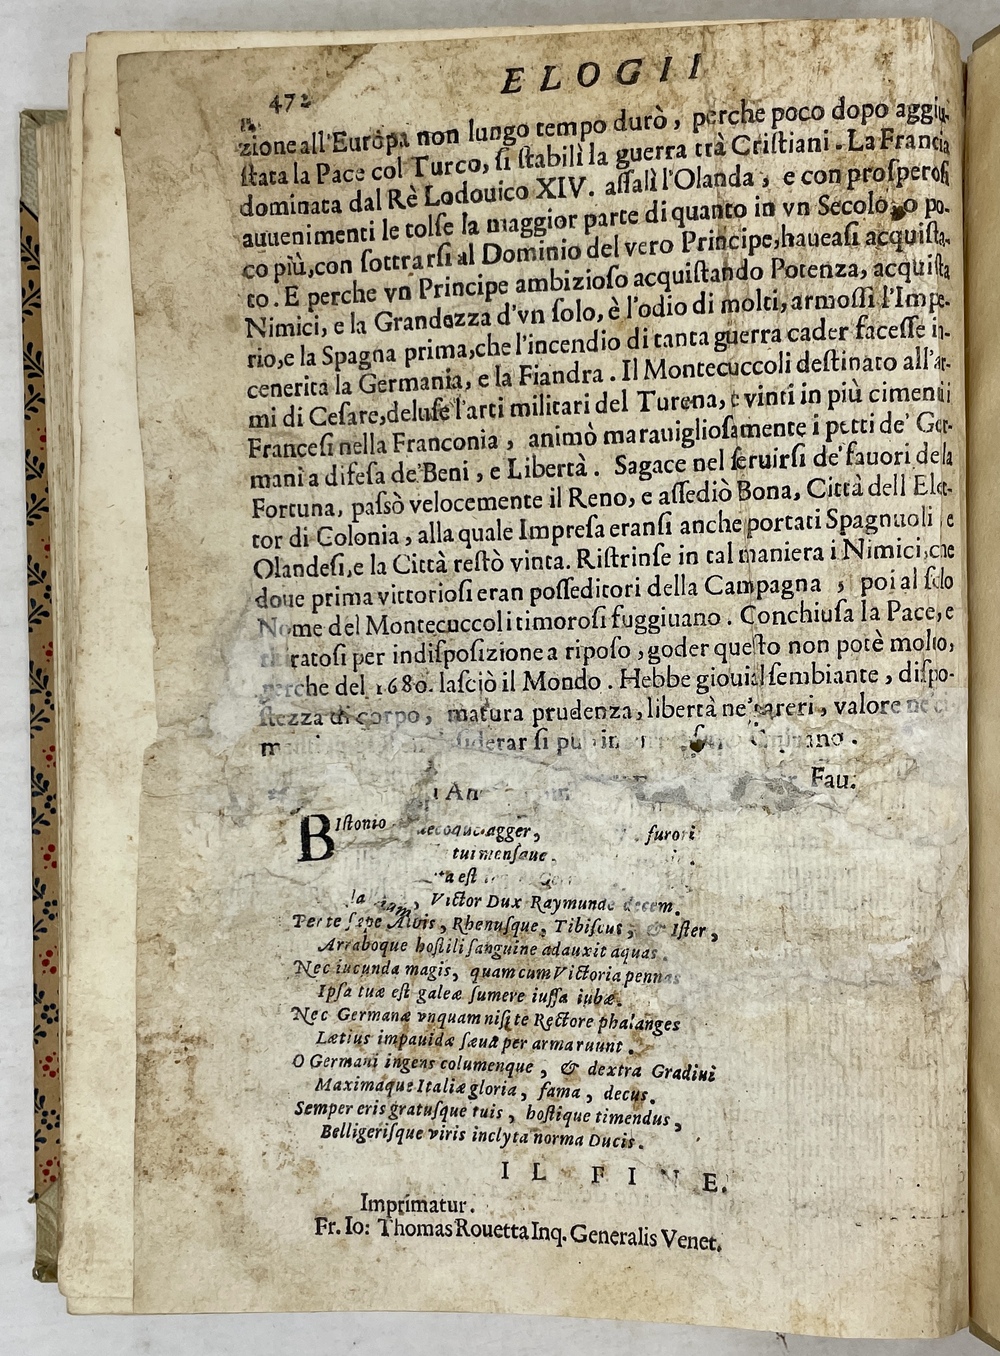 472
ELOGII
zione all'Europa non lungo tempo durò, perche poco dopo aggiu-
ſtata la Pace col Turco, ſi ſtabilì la guerra trà Criſtiani. La Francia
dominata dal Rè Lodouico XIV. aſſalì l'Olanda, e con proſperoſi
auuenimenti le tolſe la maggior parte di quanto in vn Secolo, o po-
co più, con ſottrarſi al Dominio del vero Principe, haueaſi acquiſta-
to. E perche vn Principe ambizioſo acquiſtando Potenza, acquiſta
Nimici, e la Grandezza d'vn ſolo, è l'odio di molti, armoſſi l'Impe-
rio, e la Spagna prima, che l'incendio di tanta guerra cader faceſſe in-
cenerita la Germania, e la Fiandra. Il Montecuccoli deſtinato all'ar-
mi di Ceſare, deluſe l'arti militari del Turena, e vinti in più cimenti i
Franceſi nella Franconia, animò marauiglioſamente i petti de' Ger-
mani a difeſa de' Beni, e Libertà. Sagace nel ſeruirſi de' fauori della
Fortuna, paſſò velocemente il Reno, e aſſediò Bona, Città dell Elet-
tor di Colonia, alla quale Impreſa eranſi anche portati Spagnuoli, e
Olandeſi, e la Città reſtò vinta. Riſtrinſe in tal maniera i Nimici, che
doue prima vittorioſi eran poſſeditori della Campagna, poi al ſolo
Nome del Montecuccoli timoroſi fuggiuano. Conchiuſa la Pace, e
ratoſi per indiſpoſizione a ripoſo, goder queſto non potè molto,
perche del 1680. laſciò il Mondo. Hebbe giouial ſembiante, diſpo-
ſtezza di corpo, matura prudenza, libertà ne' pareri, valore ne ci-
ſiderar ſi
Fau.
An
BIſtonio agger, furori
tui menſque
ta eſt
Victor Dux Raymunde decem.
Per te ſæpe Albis, Rhenuſque, Tibiſcus, & Iſter,
Arraboque hoſtili ſanguine adauxit aquas.
Nec iucunda magis, quam cum Victoria pennas
Ipſa tuæ eſt galeæ ſumere iuſſa iubæ.
Nec Germanæ vnquam niſi te Rectore phalanges
Lætius impauidæ ſæua per arma ruunt.
O Germani ingens columenque, & dextra Gradiui
Maximaque Italiæ gloria, fama, decus.
Semper eris gratuſque tuis, hoſtique timendus,
Belligeriſque viris inclyta norma Ducis.
IL FINE.
Imprimatur.
Fr. Io: Thomas Rouetta Inq. Generalis Venet.